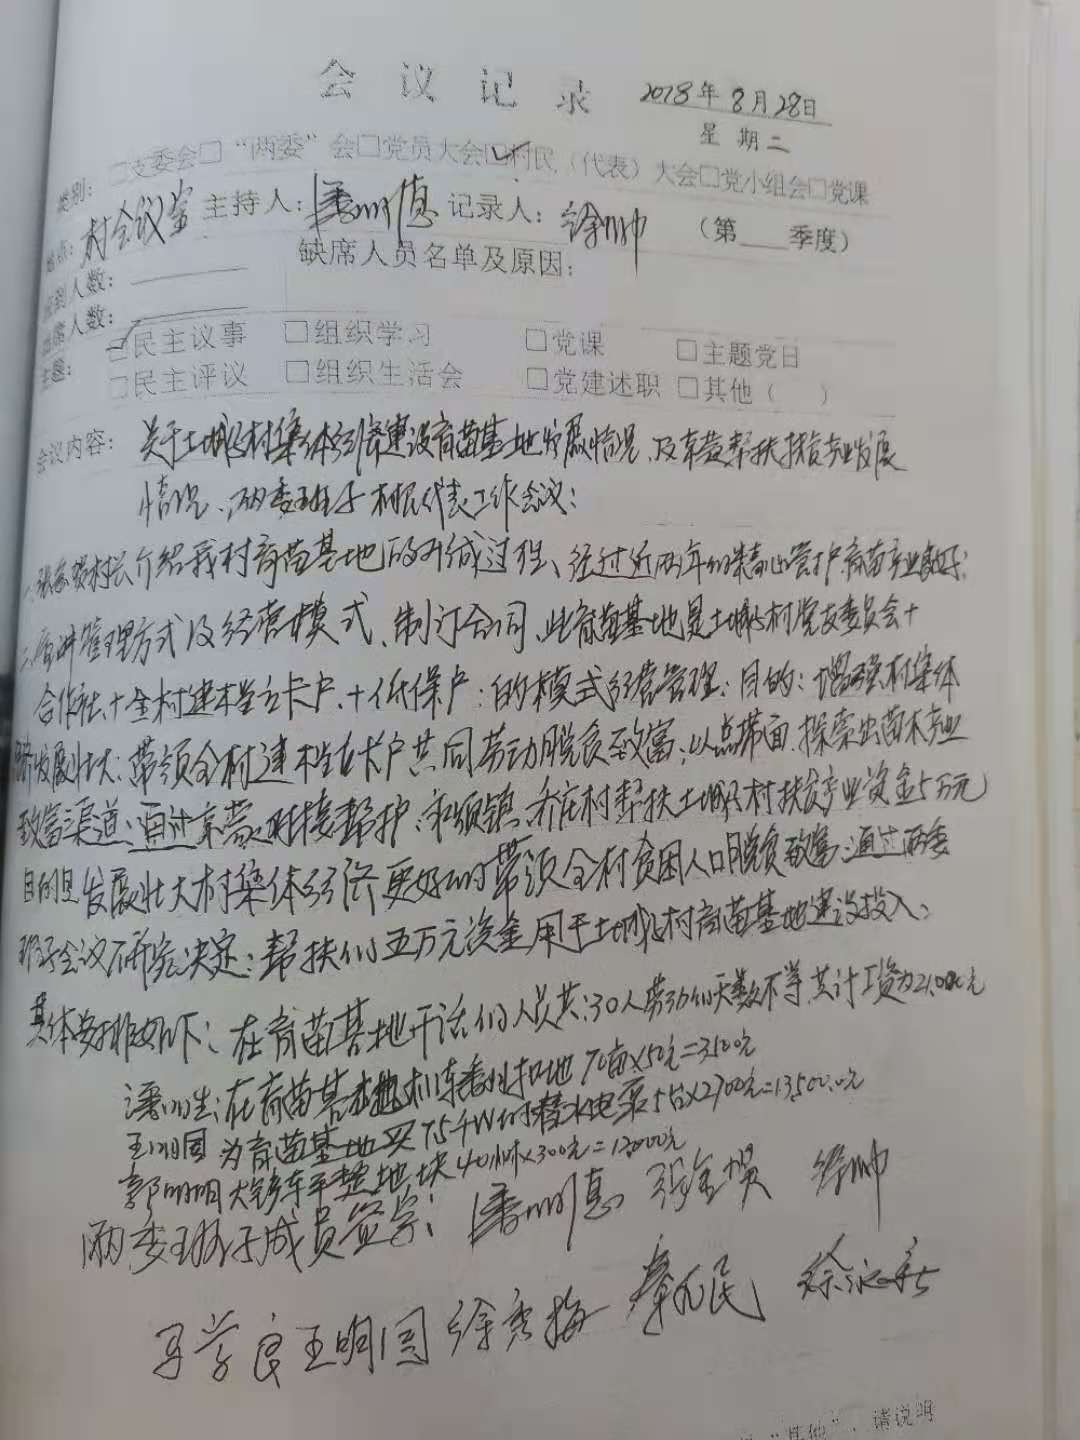 会议记录 2018年8月28日
星期二
类别：□支委会□“两委”会□党员大会☑村民（代表）大会□党小组会□党课
地点：村会议室 主持人：潘明德 记录人：徐帅 （第___季度）
应到人数： 缺席人员名单及原因：
出席人数：
主题： ☑民主议事 □组织学习 □党课 □主题党日
□民主评议 □组织生活会 □党建述职 □其他（ ）
会议内容： 关于土城子村集体经济建设育苗基地发展情况，及京蒙帮扶扶贫产业发展
情况、两委班子村民代表工作会议：
一、村长介绍我村育苗基地的形成过程、经过近两年的精心管护育苗产业良好；
二、宣讲管理方式及经营模式、制订合同、此育苗基地是土城子村党支委员会十
合作社十全村建档立卡户、十低保户：的模式经营管理：目的：增强村集体
经济发展壮大：带领全村建档立卡户共同劳动脱贫致富：以点带面、探索出苗木产业
致富渠道：通过京蒙对接帮护、永顺镇、乔庄村帮扶土城子村扶贫产业资金5万元
目的是发展壮大村集体经济更好的带领全村贫困人口脱贫致富、通过两委
班子会议研究决定：帮扶们五万元资金用于土城子村育苗基地建设投入：
具体安排如下：在育苗基地干活们人员共：30人劳动们天数不等、共计工资为21,000元
潘明生：在育苗基地机车 地70亩×50元=3500元
王明国 为育苗基地买7.5千W的潜水电泵5台×2700元=13,500.0元
郭明明大铲车平整地块40小时×300元=12000元
两委班子成员签字： 潘明德 徐帅
马学良 王明国 徐秀梅 徐永新
“其他”，请说明